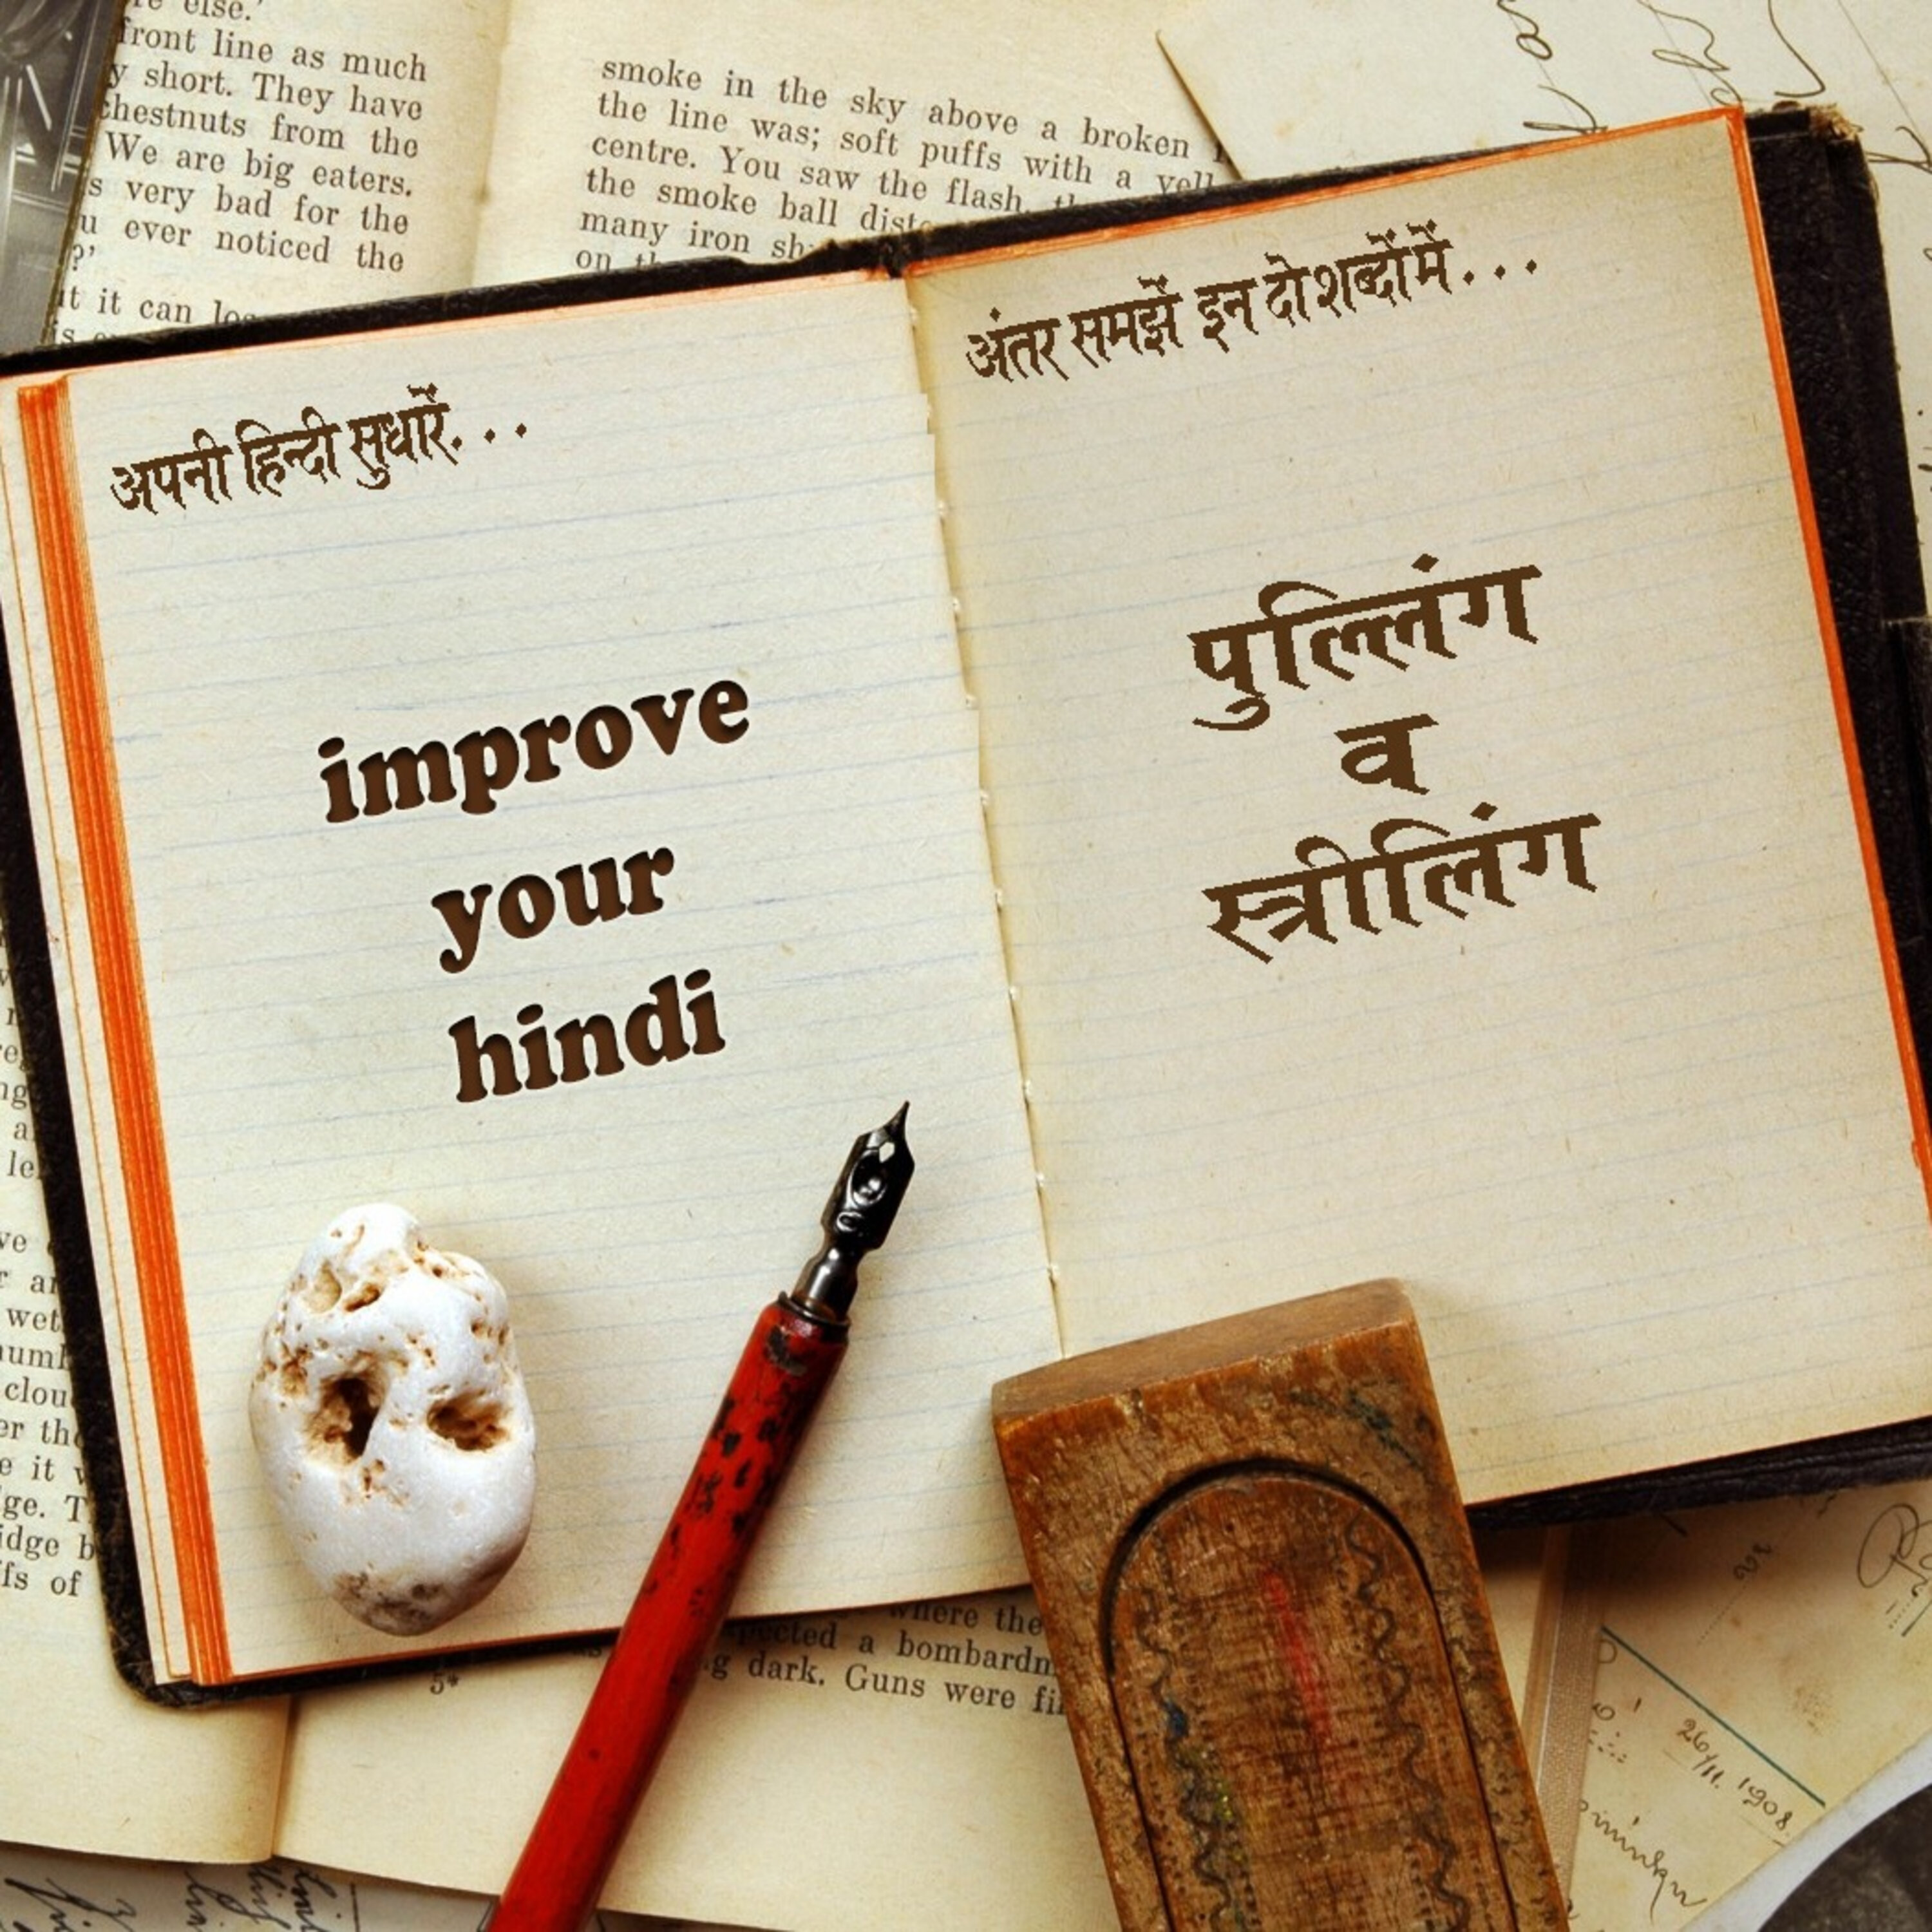 re else.'
front line as much
y short. They have
chestnuts from the
We are big eaters.
s very bad for the
u ever noticed the
?'
it it can
smoke in the sky above a broken
the line was; soft puffs with a
centre. You saw the flash,
the smoke ball
many iron
on
अपनी हिन्दी सुधारें...
improve
your
hindi
अंतर समझें इन दो शब्दों में...
पुल्लिंग
व
स्त्रीलिंग
wet
clou
it
ge. T
idge b
fs of
where the
pected a bombardm
g dark. Guns were
5*
26/11. 1908.